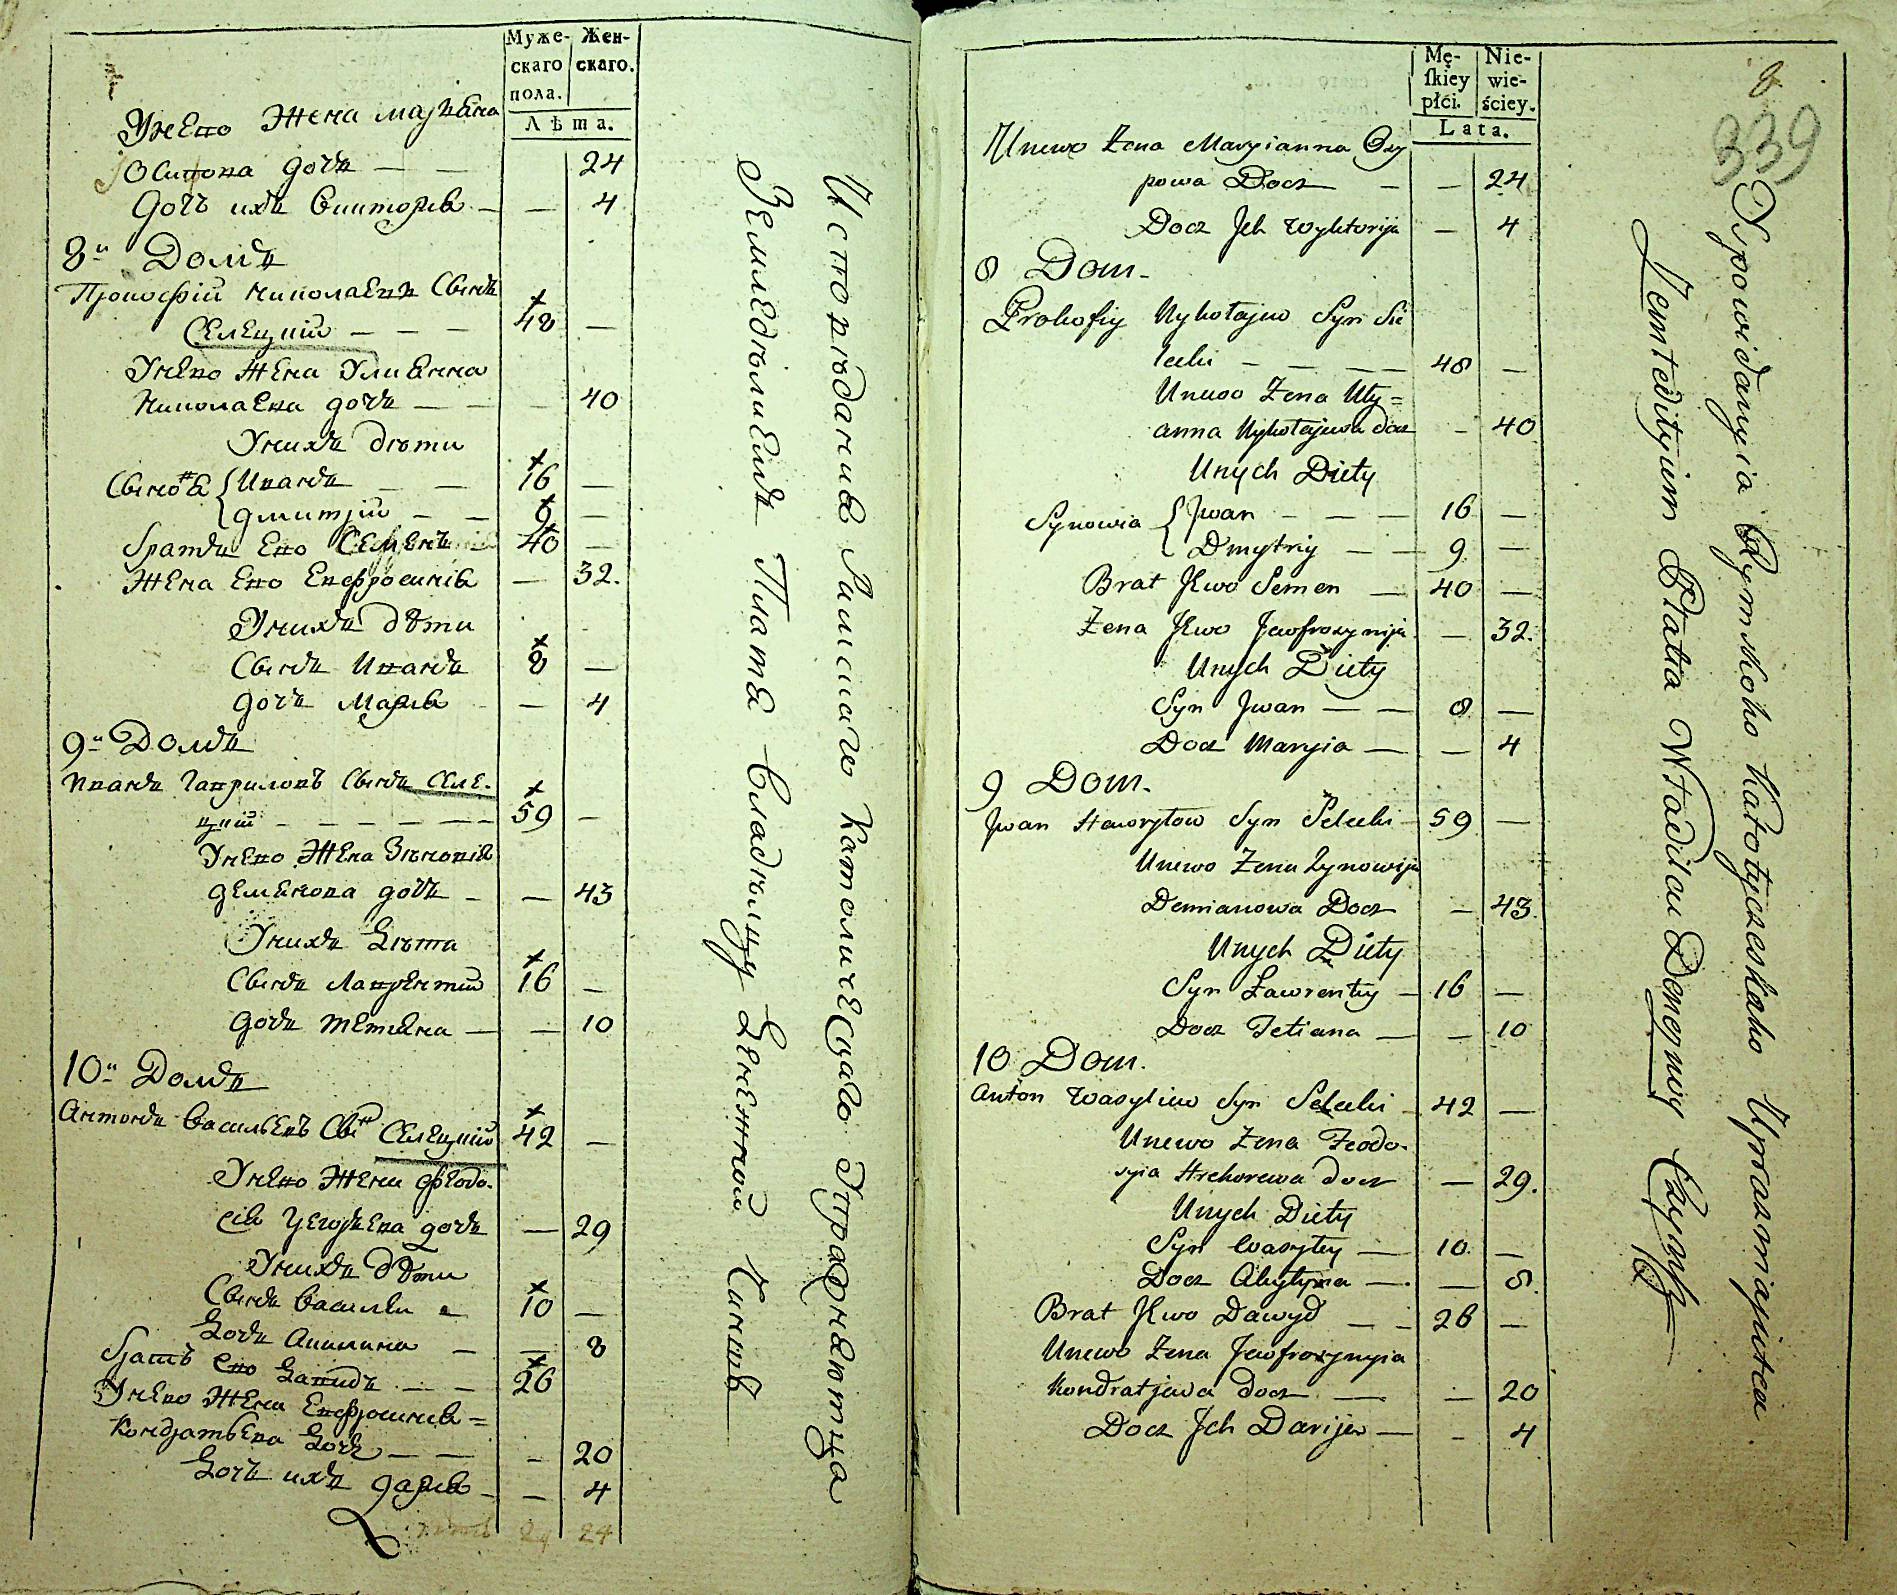 Муже-
скаго
пола.
Жен-
скаго.
Лѣта.
У него Жена Марѣана
Осипова дочъ — — 24
Дочъ ихъ Викторія — — 4
8й Домъ
Прокофій Николаевъ Сынъ
Селецкій — — — 48 —
У него Жена Улиянна
Николаева дочъ — — — 40
У нихъ дѣти
Сыновя { Иванъ — — 16 —
Дмитрій — — 9 —
Братъ его Семенъ — 40 —
Жена его Евфросинія — 32.
У нихъ дѣти
Сынъ Иванъ 8 —
Дочъ Марія — 4
9й Домъ
Иванъ Гавриловъ Сынъ Селе-
цкій — — — — — 59 —
У него Жена Зѣновія
Демянова дочъ — — 43
У нихъ Дѣти
Сынъ Лаврентій 16 —
Дочъ Тетяна — — 10
10й Домъ
Антонъ Васильевъ Сынъ Селецкій 42 —
У него Жена Феодо-
сія Григорьева дочъ — 29
У нихъ дѣти
Сынъ Василій 10 —
Дочъ Акилина — — 8
Братъ его Давидъ — — 26 —
У него Жена Евфросинія =
Кондратьева Дочъ — — — 20
Дочъ ихъ Дарія — — 4
24 24
Исповѣданія Римскаго Католическаго Упражняютца
Земледѣлиемъ Плата Владѣльцу Денежной Чиншъ
Mę-
skiey
płći.
Nie-
wie-
ściey.
Lata.
339
Unewo Żena Maryianna Osy
powa Docz — — 24
Docz Jch Wyktorija — 4
8 Dom.
Prokofiy Mykołajew Syn Sie
lecki — — — — 48 —
Unewo Żena Uly=
anna Mykołajewa docz — 40
Unych Diety
Synowia { Jwan — — — 16 —
Dmytriy — — 9 —
Brat Jewo Semen — 40 —
Żena Jewo Jewfrosynija — 32.
Unych Diety
Syn Jwan — — 8 —
Docz Maryia — — 4
9 Dom.
Jwan Hawryłow Syn Selecki — 59 —
Unewo Żena Zynowija
Demianowa Docz — 43.
Unych Diety
Syn Ławrentiy — 16 —
Docz Tetiana — — 10
10 Dom.
Anton Wasyliew Syn Selecki — 42 —
Unewo Żena Feodo-
syia Hrehorewa docz — 29.
Unych Diety
Syn Wasyley — 10 —
Docz Akylyna — — 8.
Brat Jewo Dawyd — — 26 —
Unewo Żena Jewfrosynyia
Kondratjewa docz — — 20
Docz Jch Darija — — 4
Jspowidanyia Rymskoho Katołyczeskaho Uprazniajutca
Zemledilyiem Płata Władilcu Deneżnuy Czynsz